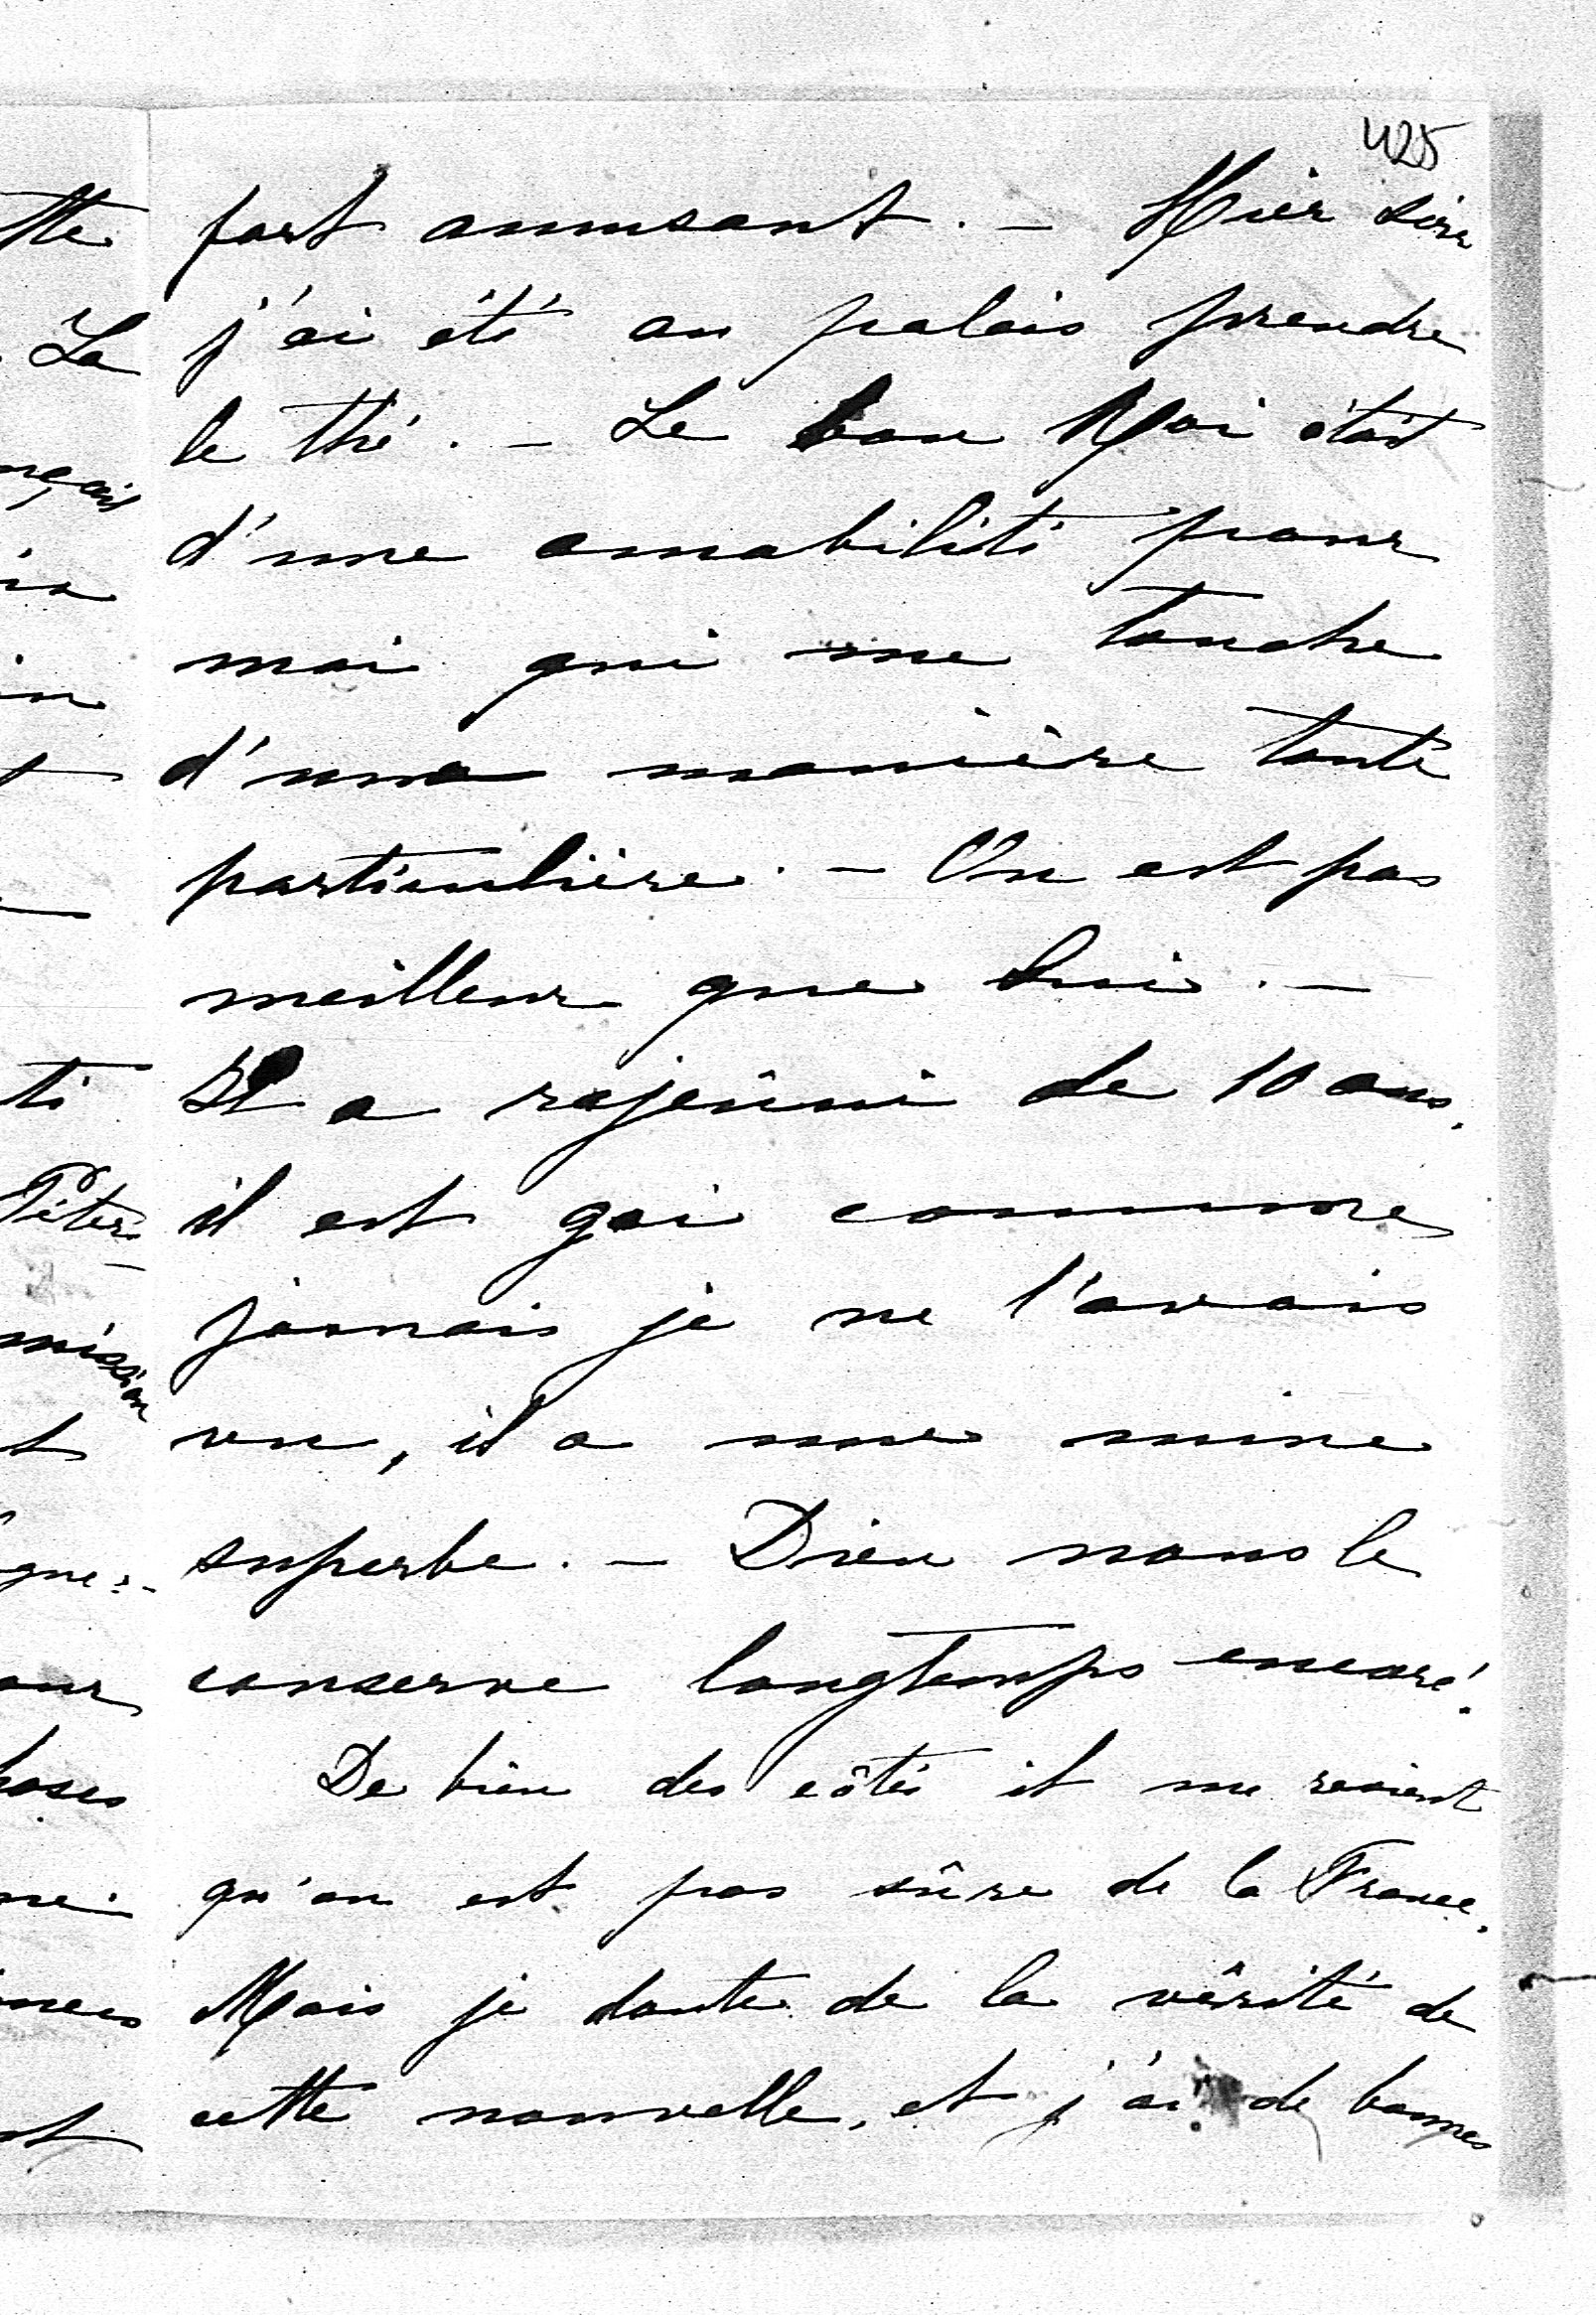 425
fort amusant. — Hier soir
j'ai été au palais prendre
le thé. — Le bon Roi était
d'une amabilité pour
moi qui me touche
d'une manière toute
particulière. — On est pas
meilleur que lui. —
Il a rajeûni de 10 ans,
il est gai comme
jamais je ne l'avais
vu, il a une mine
superbe. — Dieu nous le
conserve longtemps encore!
De bien des côtés il me revient
qu'on est pas sûre de la France.
Mais je doute de la vérité de
cette nouvelle, et j'ai de bonnes
tte
La
nçais
in
ti
Péter-
mission
gne:-
our
hoses